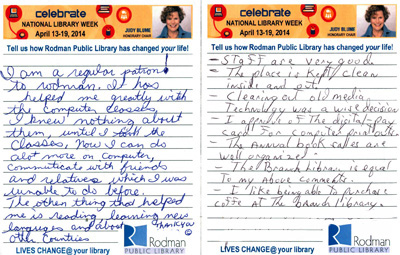 celebrate
NATIONAL LIBRARY WEEK
April 13-19, 2014
JUDY BLUME
HONORARY CHAIR
Tell us how Rodman Public Library has changed your life!
I am a regular patron
to rodman. It has
helped me greatly with
the computer classes,
I knew nothing about
them, until I took the
Classes, Now I can do
alot more on computer,
communicate with friends
and relatives, which I was
unable to do before.
The other thing that helped
me is reading, learning new
languges and about
other Countries
Thank you
Rodman
PUBLIC LIBRARY
LIVES CHANGE@your library
celebrate
NATIONAL LIBRARY WEEK
April 13-19, 2014
JUDY BLUME
HONORARY CHAIR
Tell us how Rodman Public Library has changed your life!
- Staff are very good.
- The place is kept clean
inside and out.
- Cleaning out old media
Technology was a wise decision
- I approve of the digital-pay
card for computer print outs
- The Annual book sales are
well organized.
- The Branch library is equal
to my above comments.
- I like being able to purchase
coffe at the Branch library.
Rodman
PUBLIC LIBRARY
LIVES CHANGE@your library